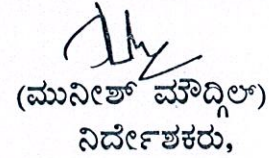 (ಮುನೀಶ್ ಮೌದ್ಗಿಲ್)
ನಿರ್ದೇಶಕರು,